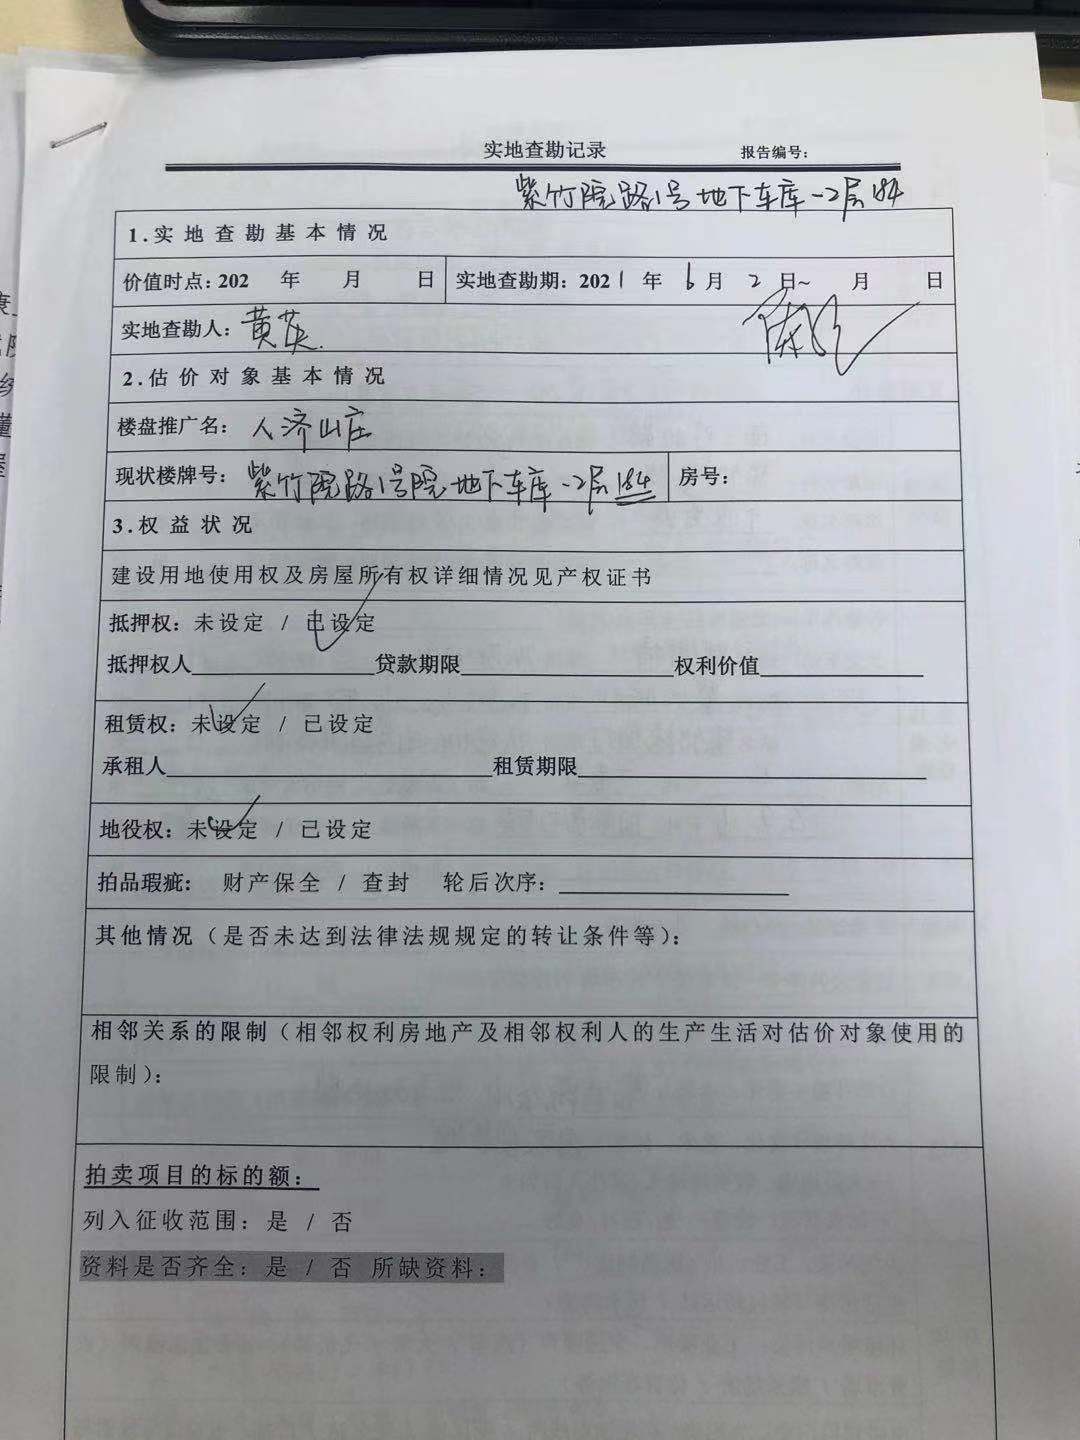 实地查勘记录 报告编号:
紫竹院路1号地下车库-2层184
1.实地查勘基本情况
价值时点: 202 年 月 日 实地查勘期: 2021年6月2日~ 月 日
实地查勘人: 黄英
2.估价对象基本情况
楼盘推广名: 人济山庄
现状楼牌号: 紫竹院路1号院地下车库-2层184 房号:
3.权益状况
建设用地使用权及房屋所有权详细情况见产权证书
抵押权: 未设定 / 已设定
抵押权人 贷款期限 权利价值
租赁权: 未设定 / 已设定
承租人 租赁期限
地役权: 未设定 / 已设定
拍品瑕疵: 财产保全 / 查封 轮后次序:
其他情况（是否未达到法律法规规定的转让条件等）:
相邻关系的限制（相邻权利房地产及相邻权利人的生产生活对估价对象使用的
限制）:
拍卖项目的标的额:
列入征收范围: 是 / 否
资料是否齐全: 是 / 否 所缺资料: